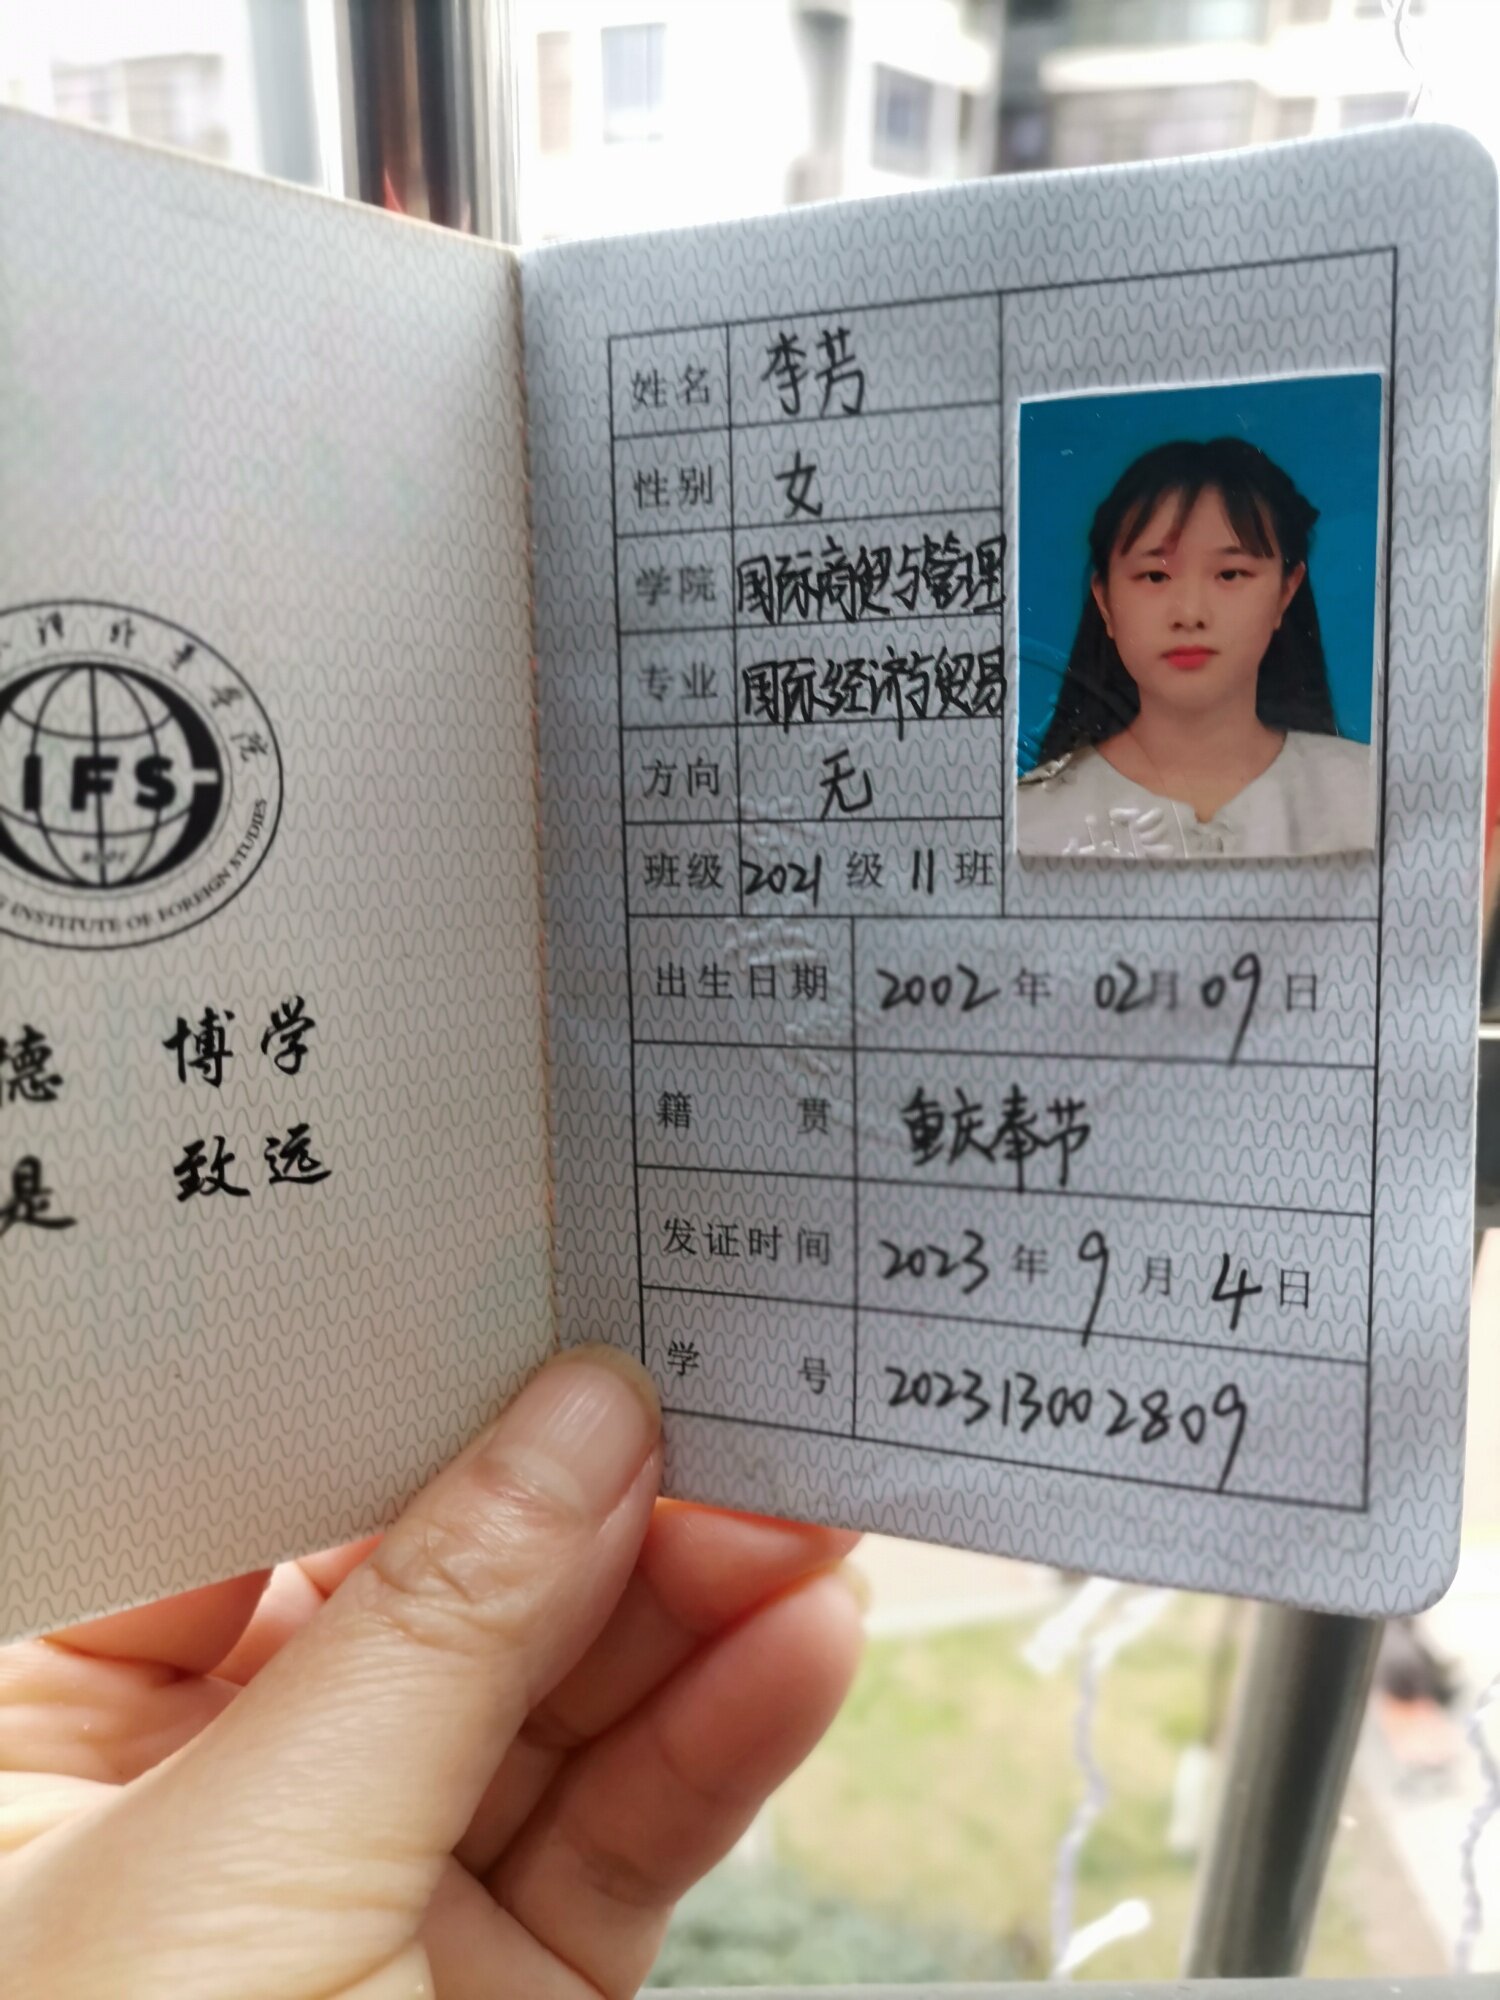 IFS
INSTITUTE OF FOREIGN STUDIES
德 博学
是 致远
姓名 李芳
性别 女
学院 国际商贸与管理
专业 国际经济与贸易
方向 无
班级 2021 级 11 班
出生日期 2002 年 02 月 09 日
籍贯 重庆奉节
发证时间 2023 年 9 月 4 日
学号 202313002809